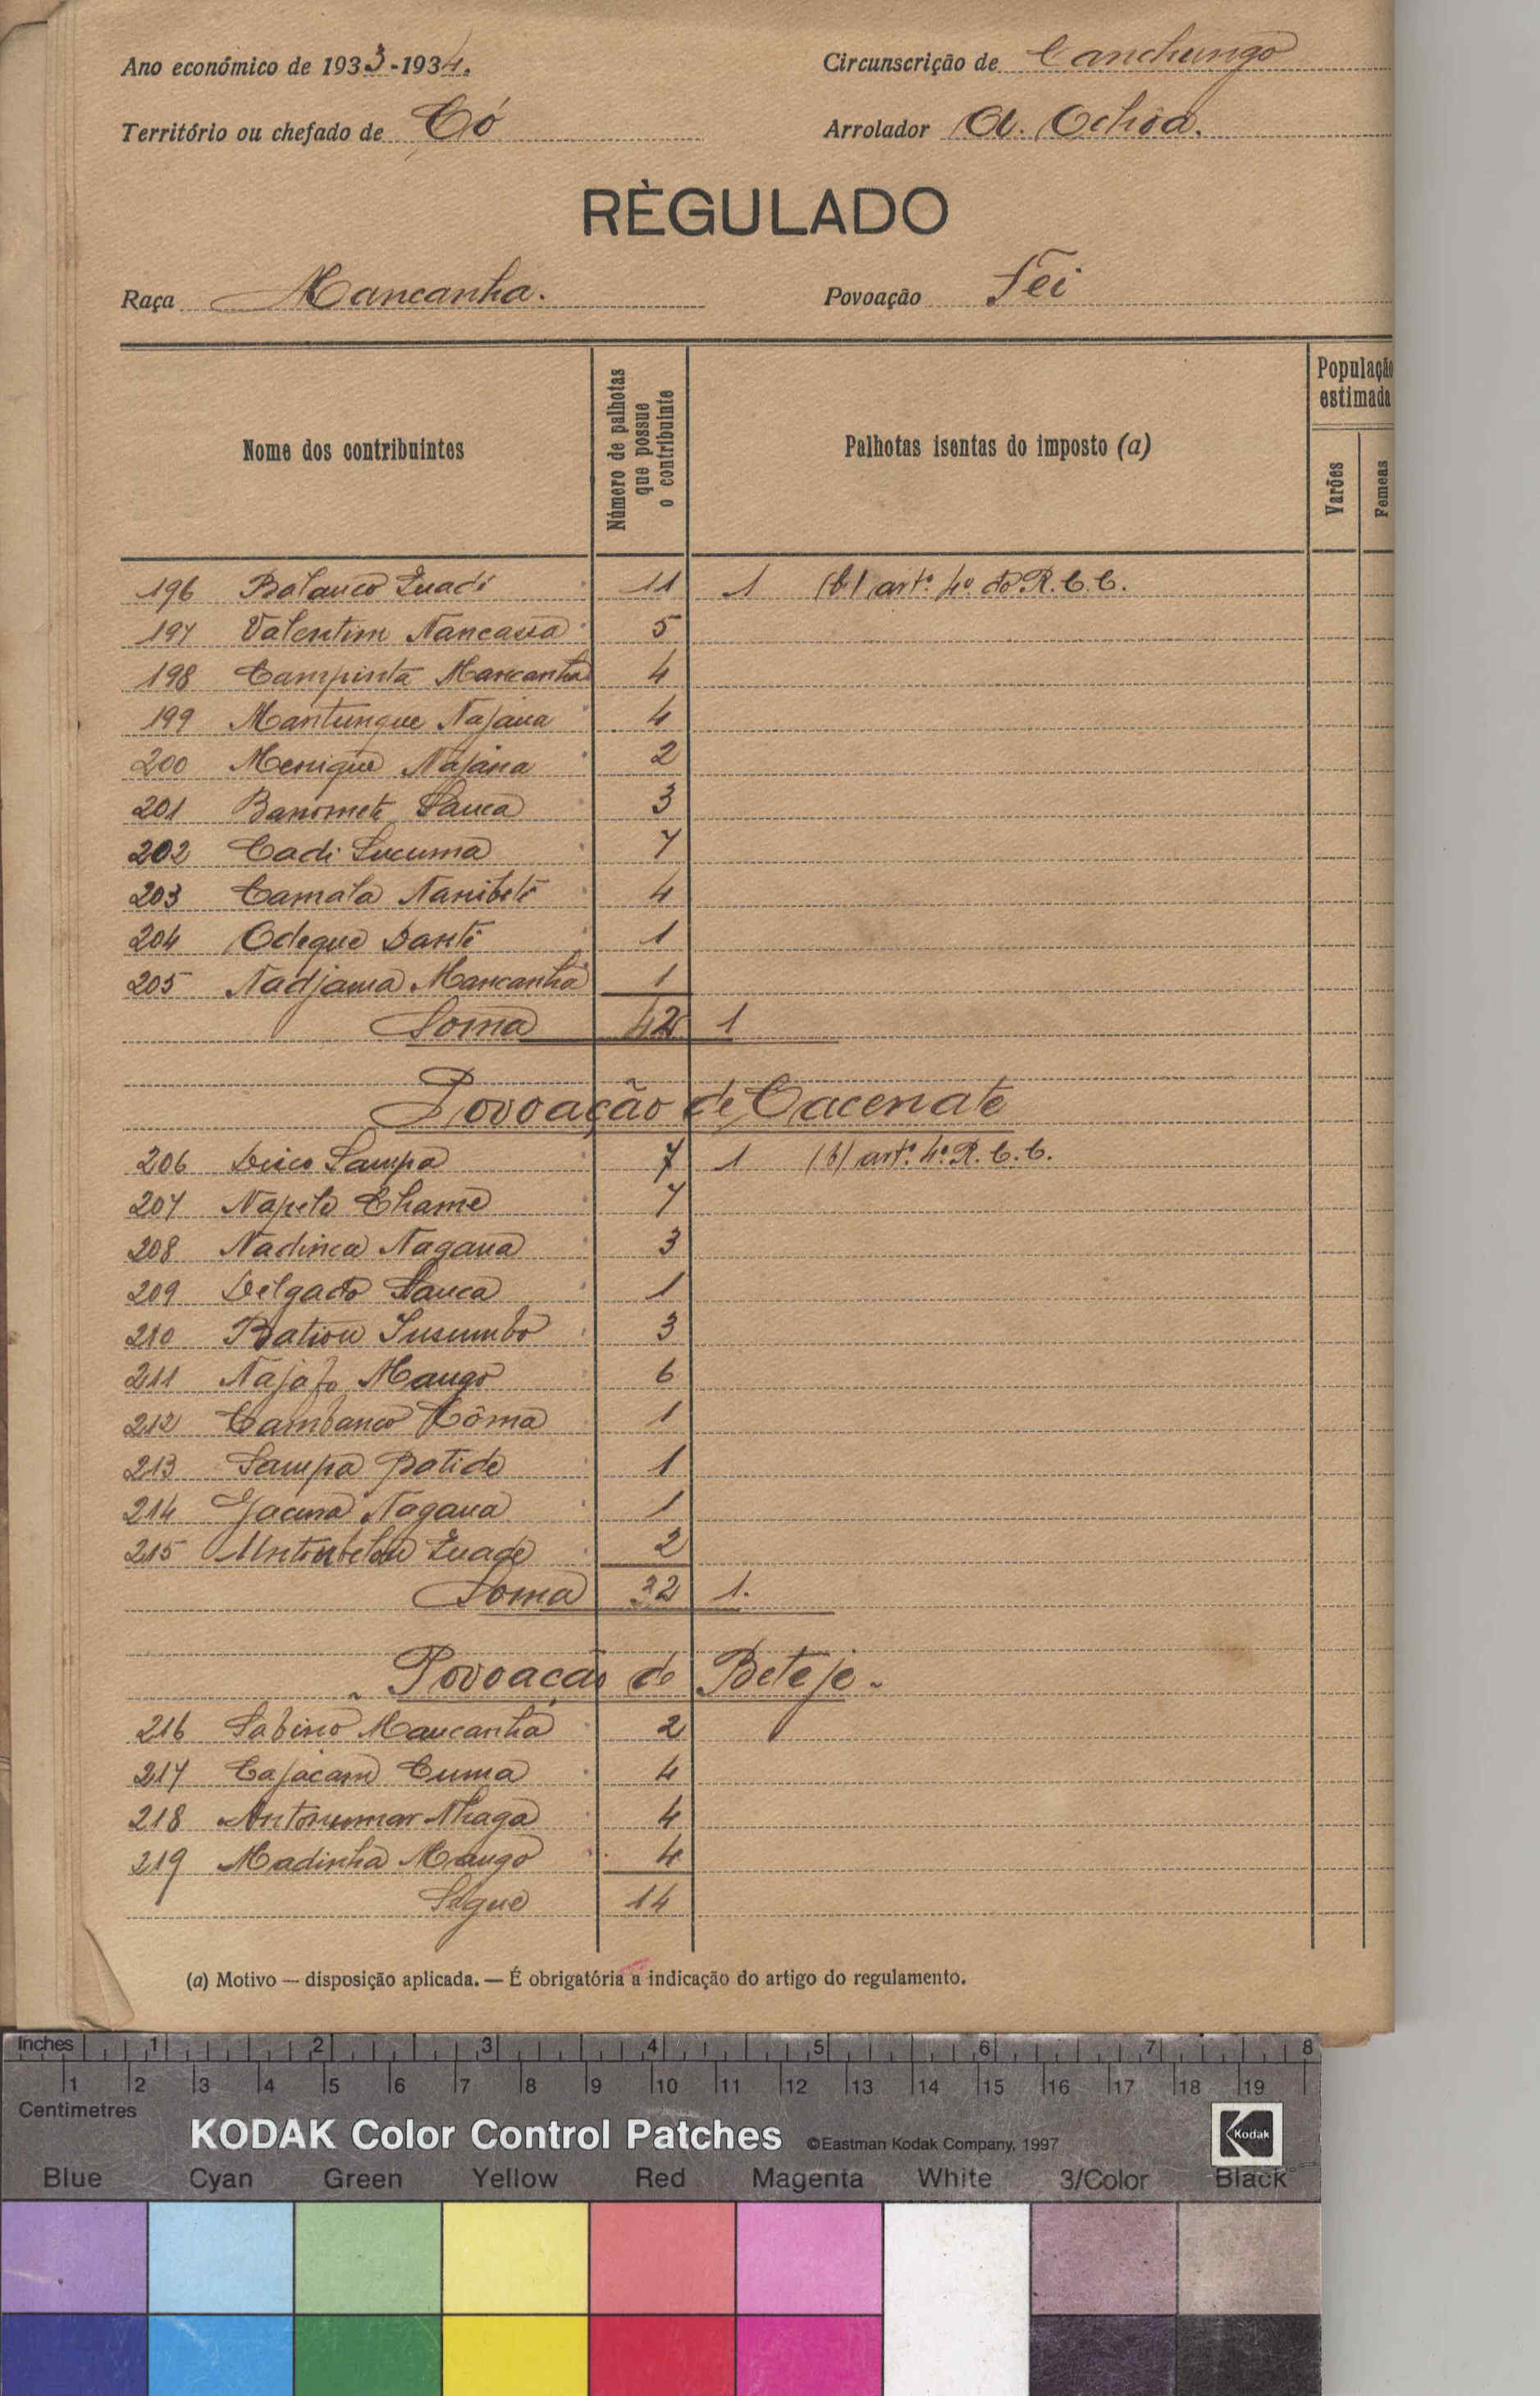 Ano económico de 1933-1934.
Circunscrição de Canchungo
Território ou chefado de Có
Arrolador A. Ochôa.
RÈGULADO
Raça Mancanha.
Povoação Fei
Nome dos contribuintes
Número de palhotas que possue o contribuinte
Palhotas isentas do imposto (a)
População estimada
Varões
Femeas
196 Balanco 11 1 (b) artº. 4º do R.C.C.
197 Valentim Nancassa 5
198 Campinta Mancanha 4
199 Mantungue Najaua 4
200 Menique Najana 2
201 Banomete Sanca 3
202 Cadi Lucuma 7
203 Camala Nanibete 4
204 Odeque Dante 1
205 Nadjama Mancanha 1
Soma 42 1
Povoação de Cacenate
206 Sampa 7 1 (b) artº. 4º R.C.C.
207 Napeto Chame 7
208 Nadinca Nagana 3
209 Delgado Sanca 1
210 Batiou Susumbo 3
211 Najafo Mango 6
212 Cambanco Côma 1
213 Sampa Batide 1
214 Nagana 1
215 2
Soma 32 1.
Povoação de Beteje.
216 Sabino Mancanha 2
217 Cajacam Cuma 4
218 Nhaga 4
219 Madinha Mango 4
Segue 14
(a) Motivo — disposição aplicada. — É obrigatória a indicação do artigo do regulamento.
Inches 1 2 3 4 5 6 7 8
1 2 3 4 5 6 7 8 9 10 11 12 13 14 15 16 17 18 19
Centimetres
KODAK Color Control Patches ©Eastman Kodak Company, 1997 Kodak
Blue Cyan Green Yellow Red Magenta White 3/Color Black